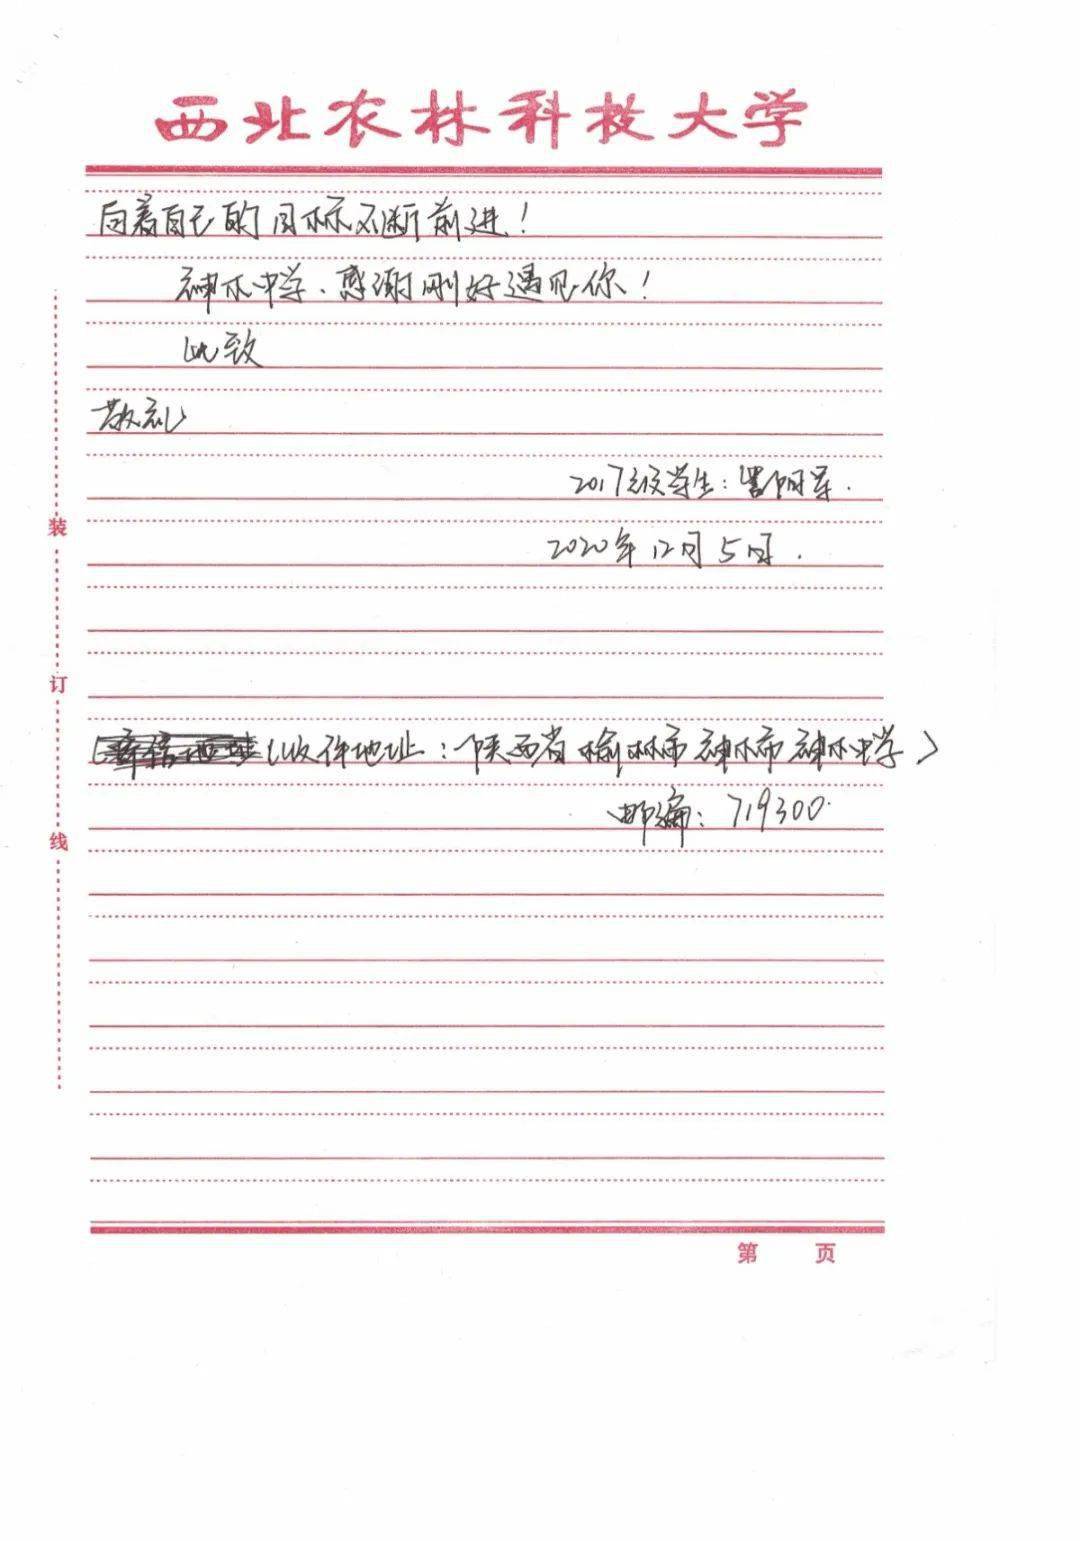 西北农林科技大学
向着自己的目标不断前进！
神木中学、感谢刚好遇见你！
此致
敬礼
2017级学生：
2020年12月5日.
（收件地址：陕西省榆林市神木市神木中学）
邮编：719300.
装
订
线
第 页